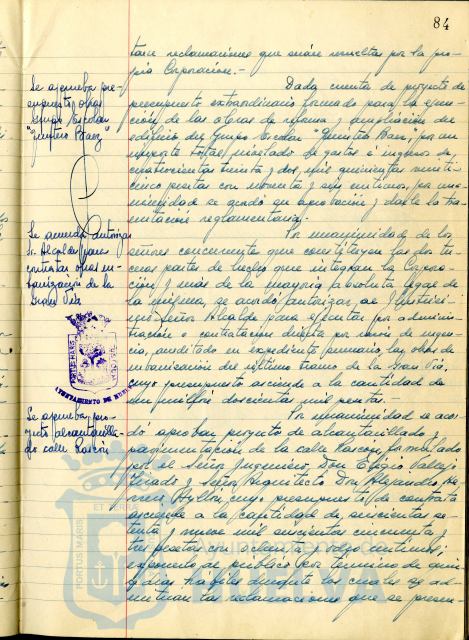 84
tase reclamaciones que serán resueltas por la pro-
pia Corporación.-
Se aprueba pre-
supuesto obras
Grupo Escolar
"Quintero Baez"
Dada cuenta de proyecto de
presupuesto extraordinario formado para la ejecu-
ción de las obras de reforma y ampliación del
edificio del Grupo Escolar "Quintero Baez", por un
importe total, nivelado de gastos é ingresos de
cuatrocientas treinta y dos mil quinientas veinti-
cinco pesetas con noventa y seis céntimos, por una-
nimidad se acordó su aprobación y darle la tra-
mitación reglamentaria.
Se acuerda autorizar
Sr. Alcalde para
contratar obras ur-
banización de la
Gran Vía
Por unanimidad de los
señores concurrentes que constituyen las dos ter-
ceras partes de hecho que integran la Corpora-
ción y más de la mayoría absoluta legal de
la misma, se acordó autorizar al Ilustrísi-
mo Señor Alcalde para ejecutar por adminis-
tración o contratación directa por razón de urgen-
cia, acreditado en expediente sumario, las obras de
urbanización del último tramo de la Gran Vía,
cuyo presupuesto asciende a la cantidad de
un millón doscientas mil pesetas.-
AYUNTAMIENTO DE HUELVA
Se aprueba pro-
yecto alcantarilla-
do calle Rascón
Por unanimidad se acor-
dó aprobar proyecto de alcantarillado y
pavimentación de la calle Rascón formulado
por el Señor Ingeniero, Don Eligio Vallejo
y Señor Arquitecto Don Alejandro He-
rrero Ayllón, cuyo presupuesto de contrata
asciende a la cantidad de seiscientas se-
tenta y nueve mil seiscientas cincuenta y
tres pesetas con ochenta y ocho céntimos;
exponerlo al público por término de quin-
ce días hábiles durante los cuales se ad-
mitirán las reclamaciones que se presen-
PORTUS MARIS
ET TERRAE
Ayuntamiento de
HUELVA